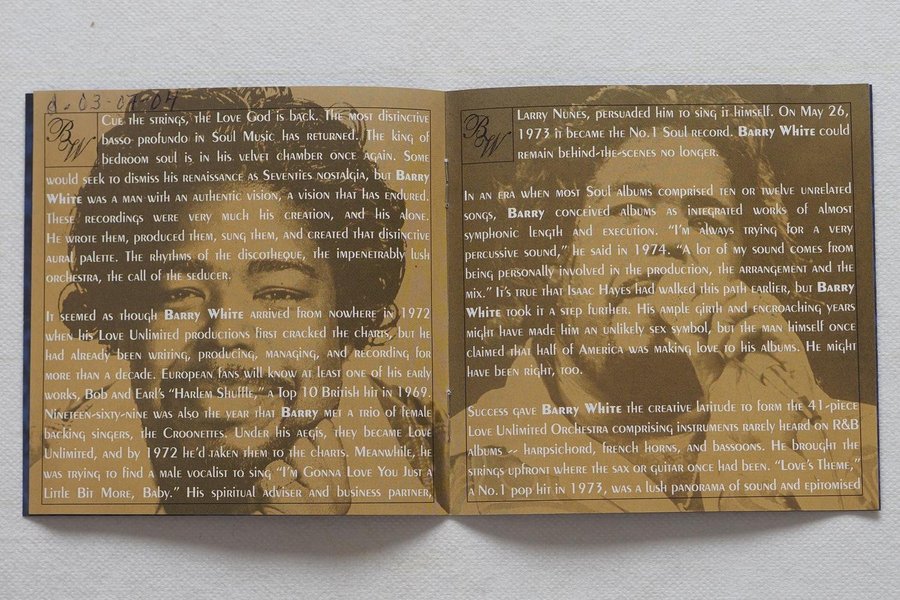 d. 03-07-04
BW
Cue the strings, the Love God is back. The most distinctive
basso profundo in Soul Music has returned. The king of
bedroom soul is in his velvet chamber once again. Some
would seek to dismiss his renaissance as Seventies nostalgia, but Barry
White was a man with an authentic vision, a vision that has endured.
These recordings were very much his creation, and his alone.
He wrote them, produced them, sung them, and created that distinctive
aural palette. The rhythms of the discotheque, the impenetrably lush
orchestra, the call of the seducer.
It seemed as though Barry White arrived from nowhere in 1972
when his Love Unlimited productions first cracked the charts, but he
had already been writing, producing, managing, and recording for
more than a decade. European fans will know at least one of his early
works, Bob and Earl's "Harlem Shuffle," a Top 10 British hit in 1969.
Nineteen-sixty-nine was also the year that Barry met a trio of female
backing singers, the Croonettes. Under his aegis, they became Love
Unlimited, and by 1972 he'd taken them to the charts. Meanwhile, he
was trying to find a male vocalist to sing "I'm Gonna Love You Just a
Little Bit More, Baby." His spiritual adviser and business partner,
BW
Larry Nunes, persuaded him to sing it himself. On May 26,
1973 it became the No.1 Soul record. Barry White could
remain behind-the-scenes no longer.
In an era when most Soul albums comprised ten or twelve unrelated
songs, Barry conceived albums as integrated works of almost
symphonic length and execution. "I'm always trying for a very
percussive sound," he said in 1974. "A lot of my sound comes from
being personally involved in the production, the arrangement and the
mix." It's true that Isaac Hayes had walked this path earlier, but Barry
White took it a step further. His ample girth and encroaching years
might have made him an unlikely sex symbol, but the man himself once
claimed that half of America was making love to his albums. He might
have been right, too.
Success gave Barry White the creative latitude to form the 41-piece
Love Unlimited Orchestra comprising instruments rarely heard on R&B
albums - harpsichord, french horns, and bassoons. He brought the
strings upfront where the sax or guitar once had been. "Love's Theme,"
a No.1 pop hit in 1973, was a lush panorama of sound and epitomised